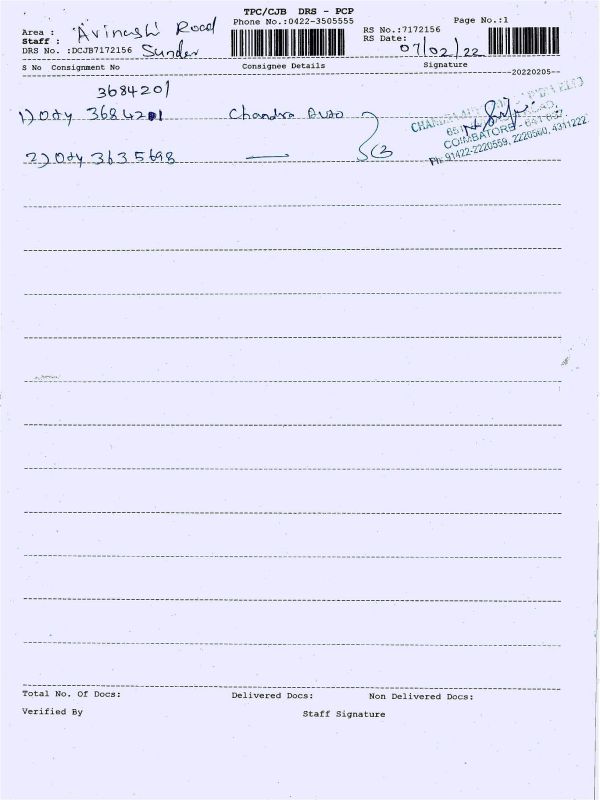 TPC/CJB DRS - PCP
Phone No.:0422-3505555
Page No.:1
Area : Avinashi Road
Staff : Sunder
DRS No. :DCJB7172156
RS No.:7172156
RS Date: 07/02/22
S No Consignment No Consignee Details Signature
--20220205--
3684201
1) Oty 3684201 Chandra Auto
2) Oty 3635698
COIMBATORE - 641
Ph: 91422-2220559, 2220560, 4311222
Total No. Of Docs: Delivered Docs: Non Delivered Docs:
Verified By Staff Signature